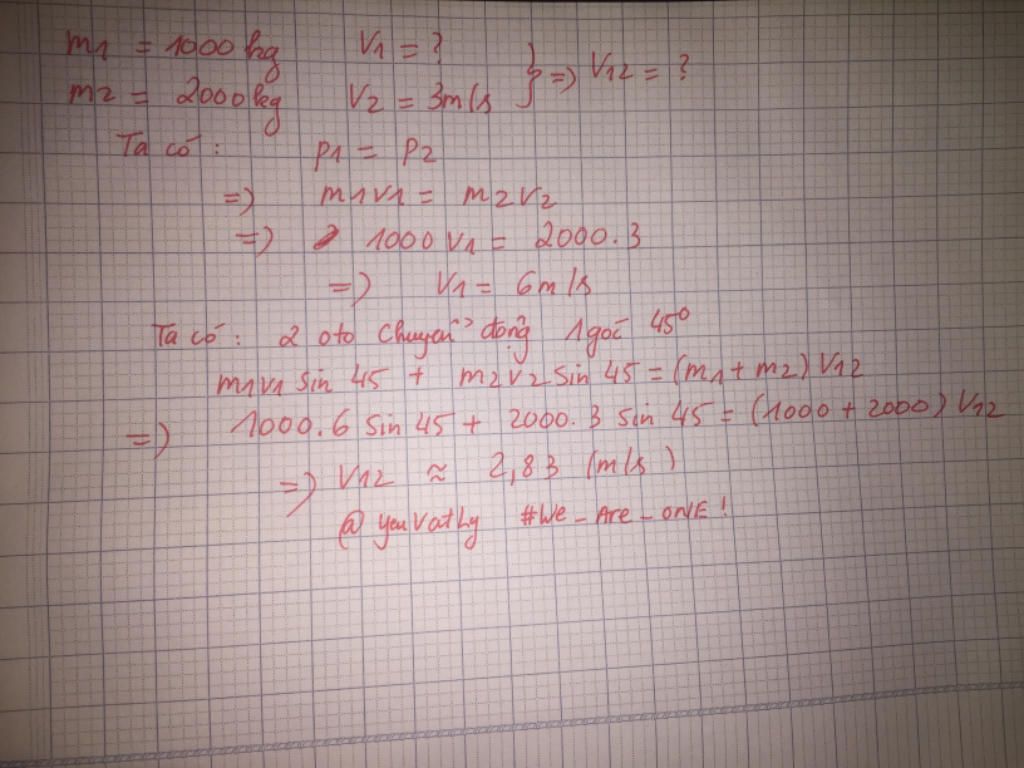 m1 = 1000 kg V1 = ?
m2 = 2000 kg V2 = 3m/s } => V12 = ?
Ta có : P1 = P2
=) m1V1 = m2V2
=) 1000 V1 = 2000.3
=) V1 = 6m/s
Ta có : 2 oto chuyển động 1 góc 45°
m1V1 sin 45 + m2V2 sin 45 = (m1 + m2) V12
=) 1000.6 sin 45 + 2000.3 sin 45 = (1000 + 2000) V12
=) V12 ≈ 2,83 (m/s)
@ yeuvatly #We_Are_onE !